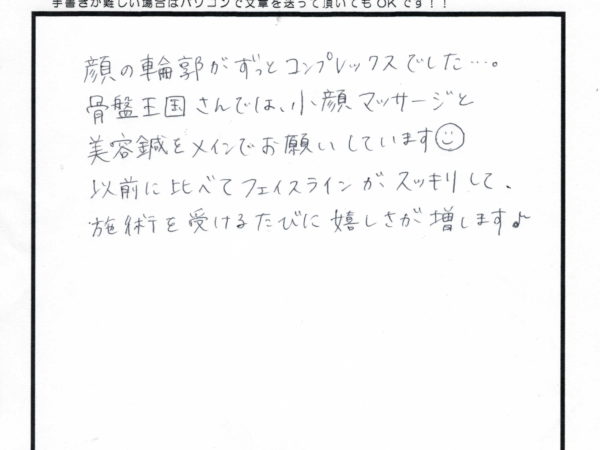 手書きが難しい場合はパソコンで文章を送って頂いてもOKです！！
顔の輪郭がずっとコンプレックスでした…。
骨盤王国さんでは、小顔マッサージと
美容鍼をメインでお願いしています☺
以前に比べてフェイスラインがスッキリして、
施術を受けるたびに嬉しさが増します♪